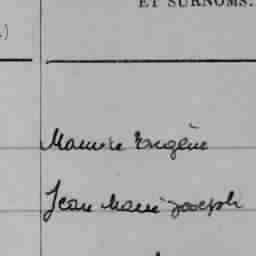 ET SURNOMS.
)
Maurice Eugène
Jean Marie Joseph